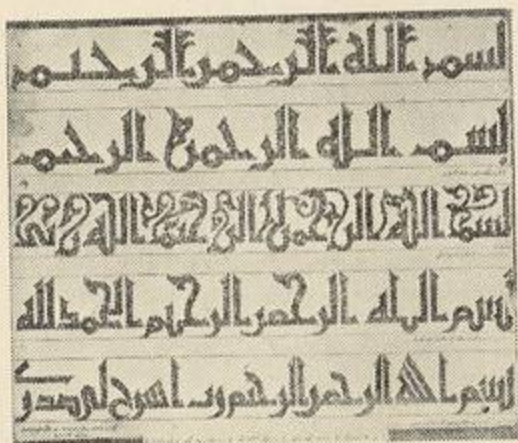 بسم الله الرحمن الرحيم
بسم الله الرحمن الرحيم
بسم الله الرحمن الرحيم
بسم الله الرحمن الرحيم الحمد لله
بسم الله الرحمن الرحيم رب اشرح لي صدري